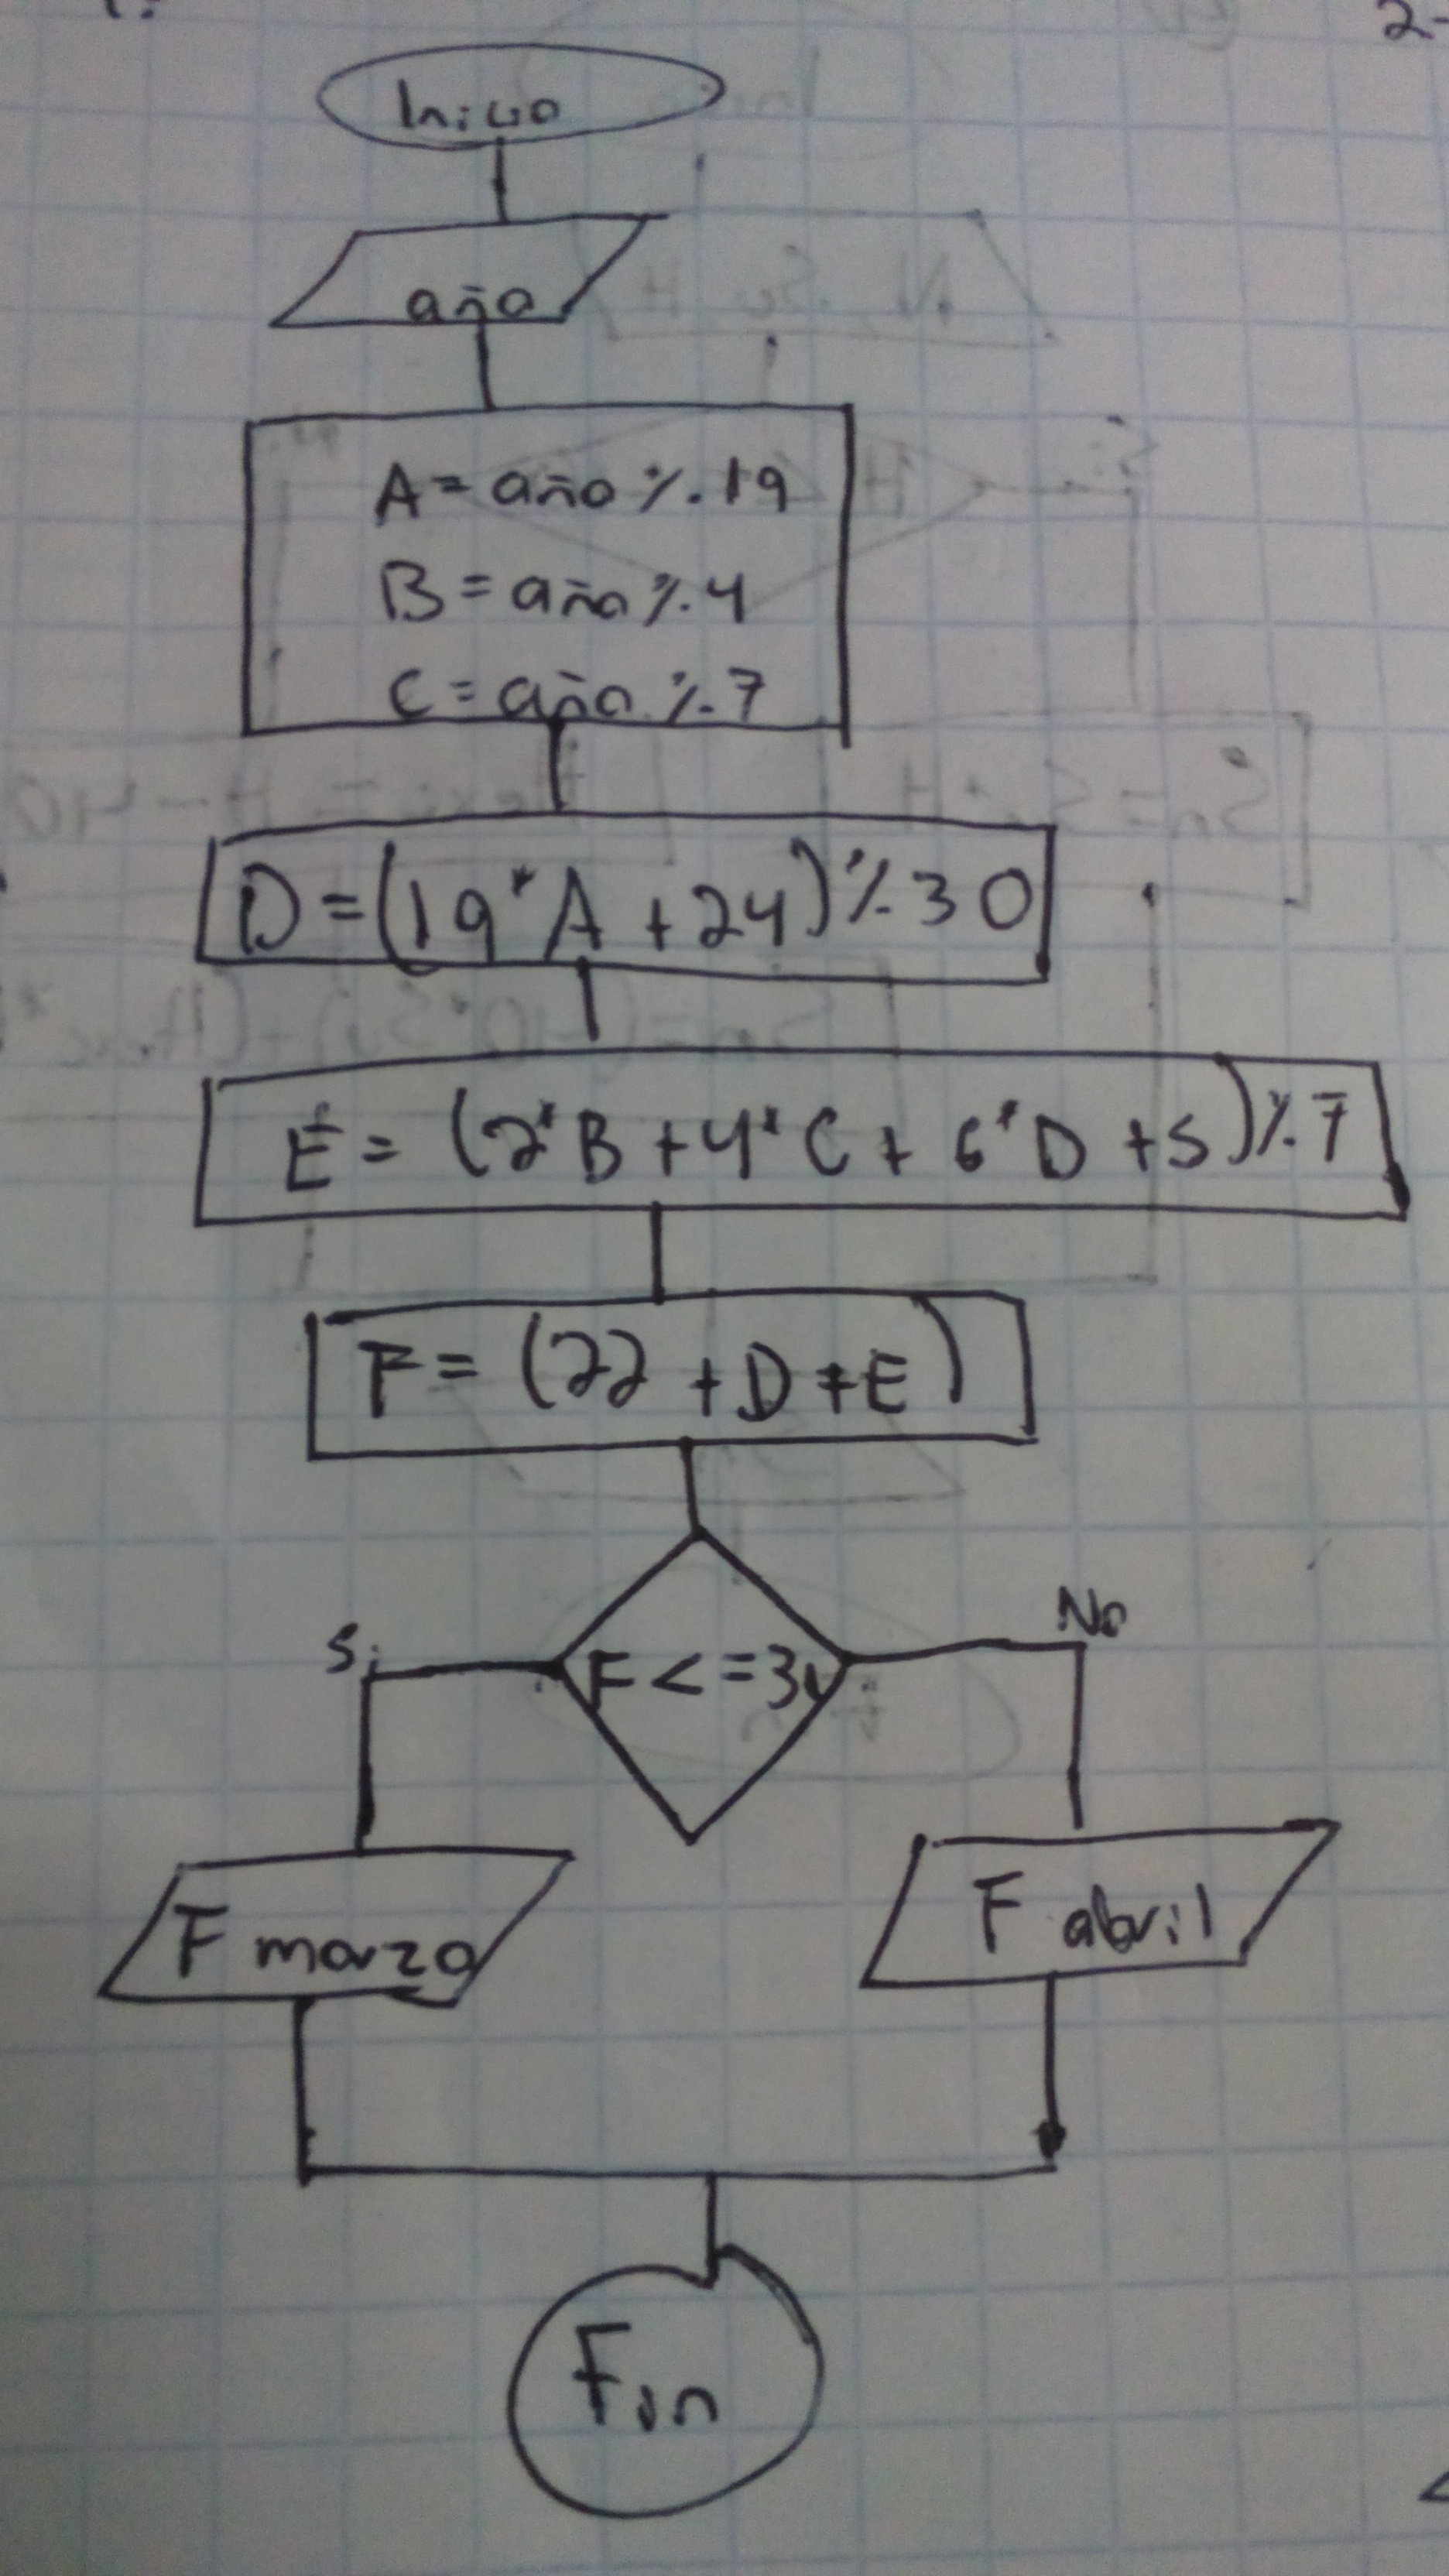 2-
Inicio
año
A = año % 19
B = año % 4
C = año % 7
D = (19*A + 24) % 30
E = (2*B + 4*C + 6*D + 5) % 7
F = (22 + D + E)
F <= 31
Si
No
F marzo
F abril
Fin